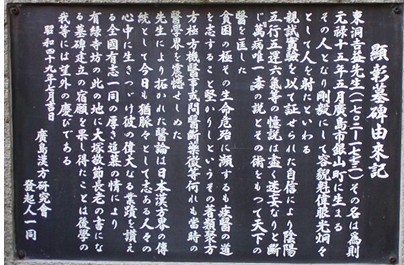 顕彰墓碑由来記
東洞吉益先生(一七〇二-一七七三)その名は為則
元禄十五年五月廣島市銀山町に生まる
その人となり剛毅にして容貌魁偉眼光烱々
として人を射たといわる
親試実験を以て証せられた自信により陰陽
五行五運六氣等の憶説は盡く迷妄なりと斷
じ萬病唯一毒の説とその術をもって天下の
醫を匡した
貧困の極その生命危殆に瀕するも疾醫の道
を志すこと堅かりしという その着類聚方
方極方機醫事或問醫斷藥徴等何れも當時の
醫學界を震憾せしめた
先生により拓かれた醫論は日本漢方界の傳
統として今日も猶脈々として志ある人々の
心中に生きつづけ彼の偉大なる業績を讃え
る全國有志一同の厚き追慕の情により
有縁寺坊の此の地に大塚敬節長老の書にな
る墓碑建立の宿願を果し得たことは後學の
我等には望外の慶びである
昭和四十九年七月七日
廣島漢方研究會
發起人一同